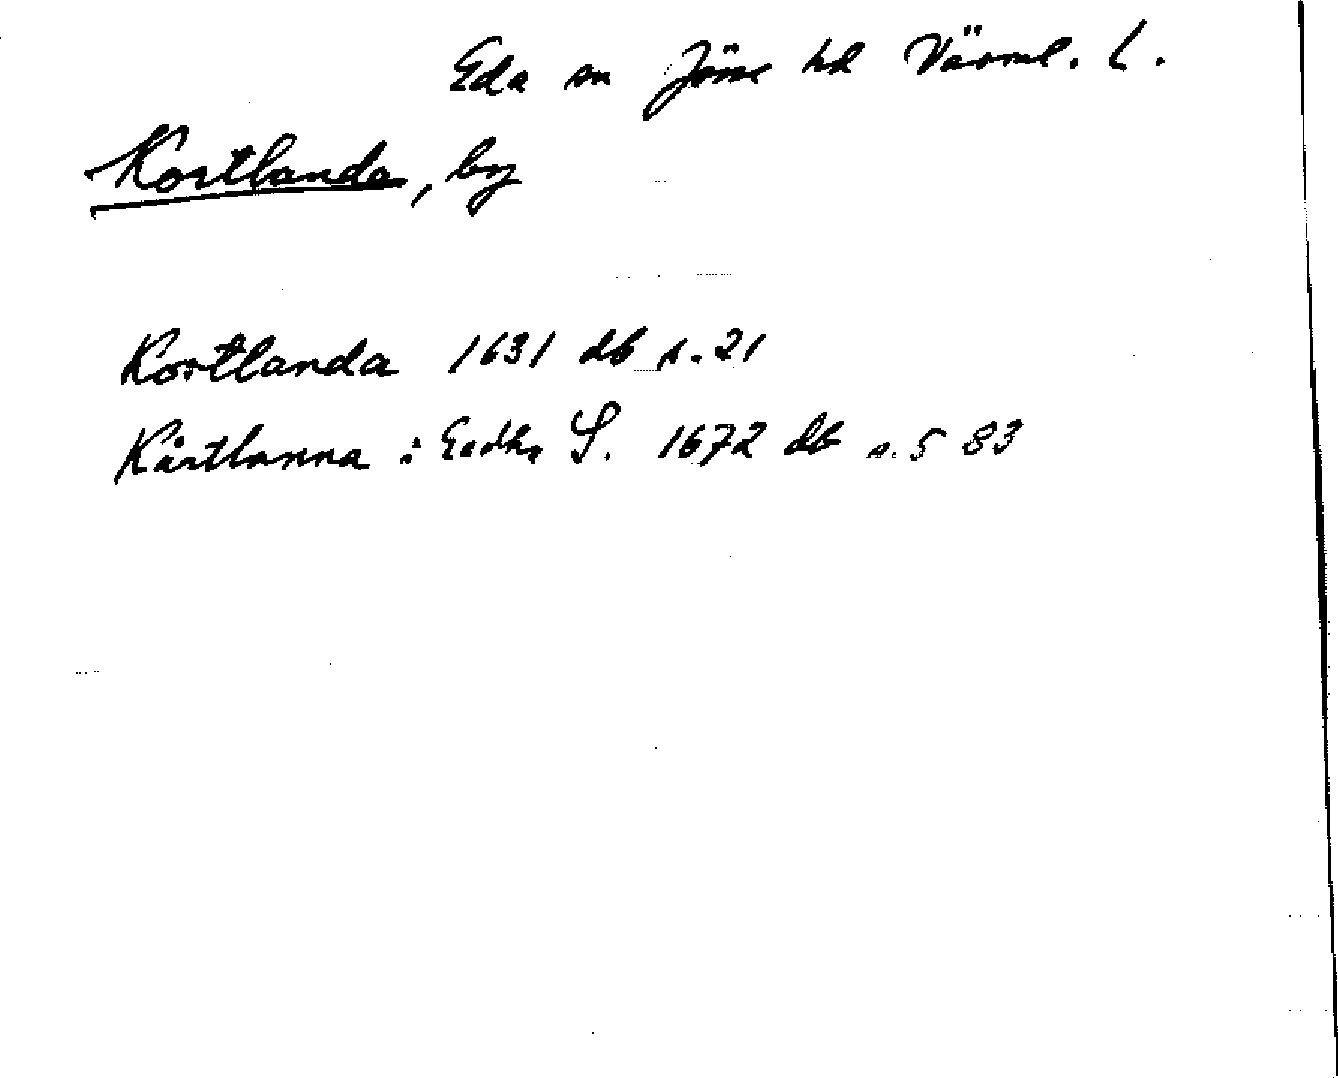 Eda sn Jösse hd Värml. L.
Kortlanda, by
Kortlanda 1631 db s. 21
Kårtlanna i S. 1672 db s. 583